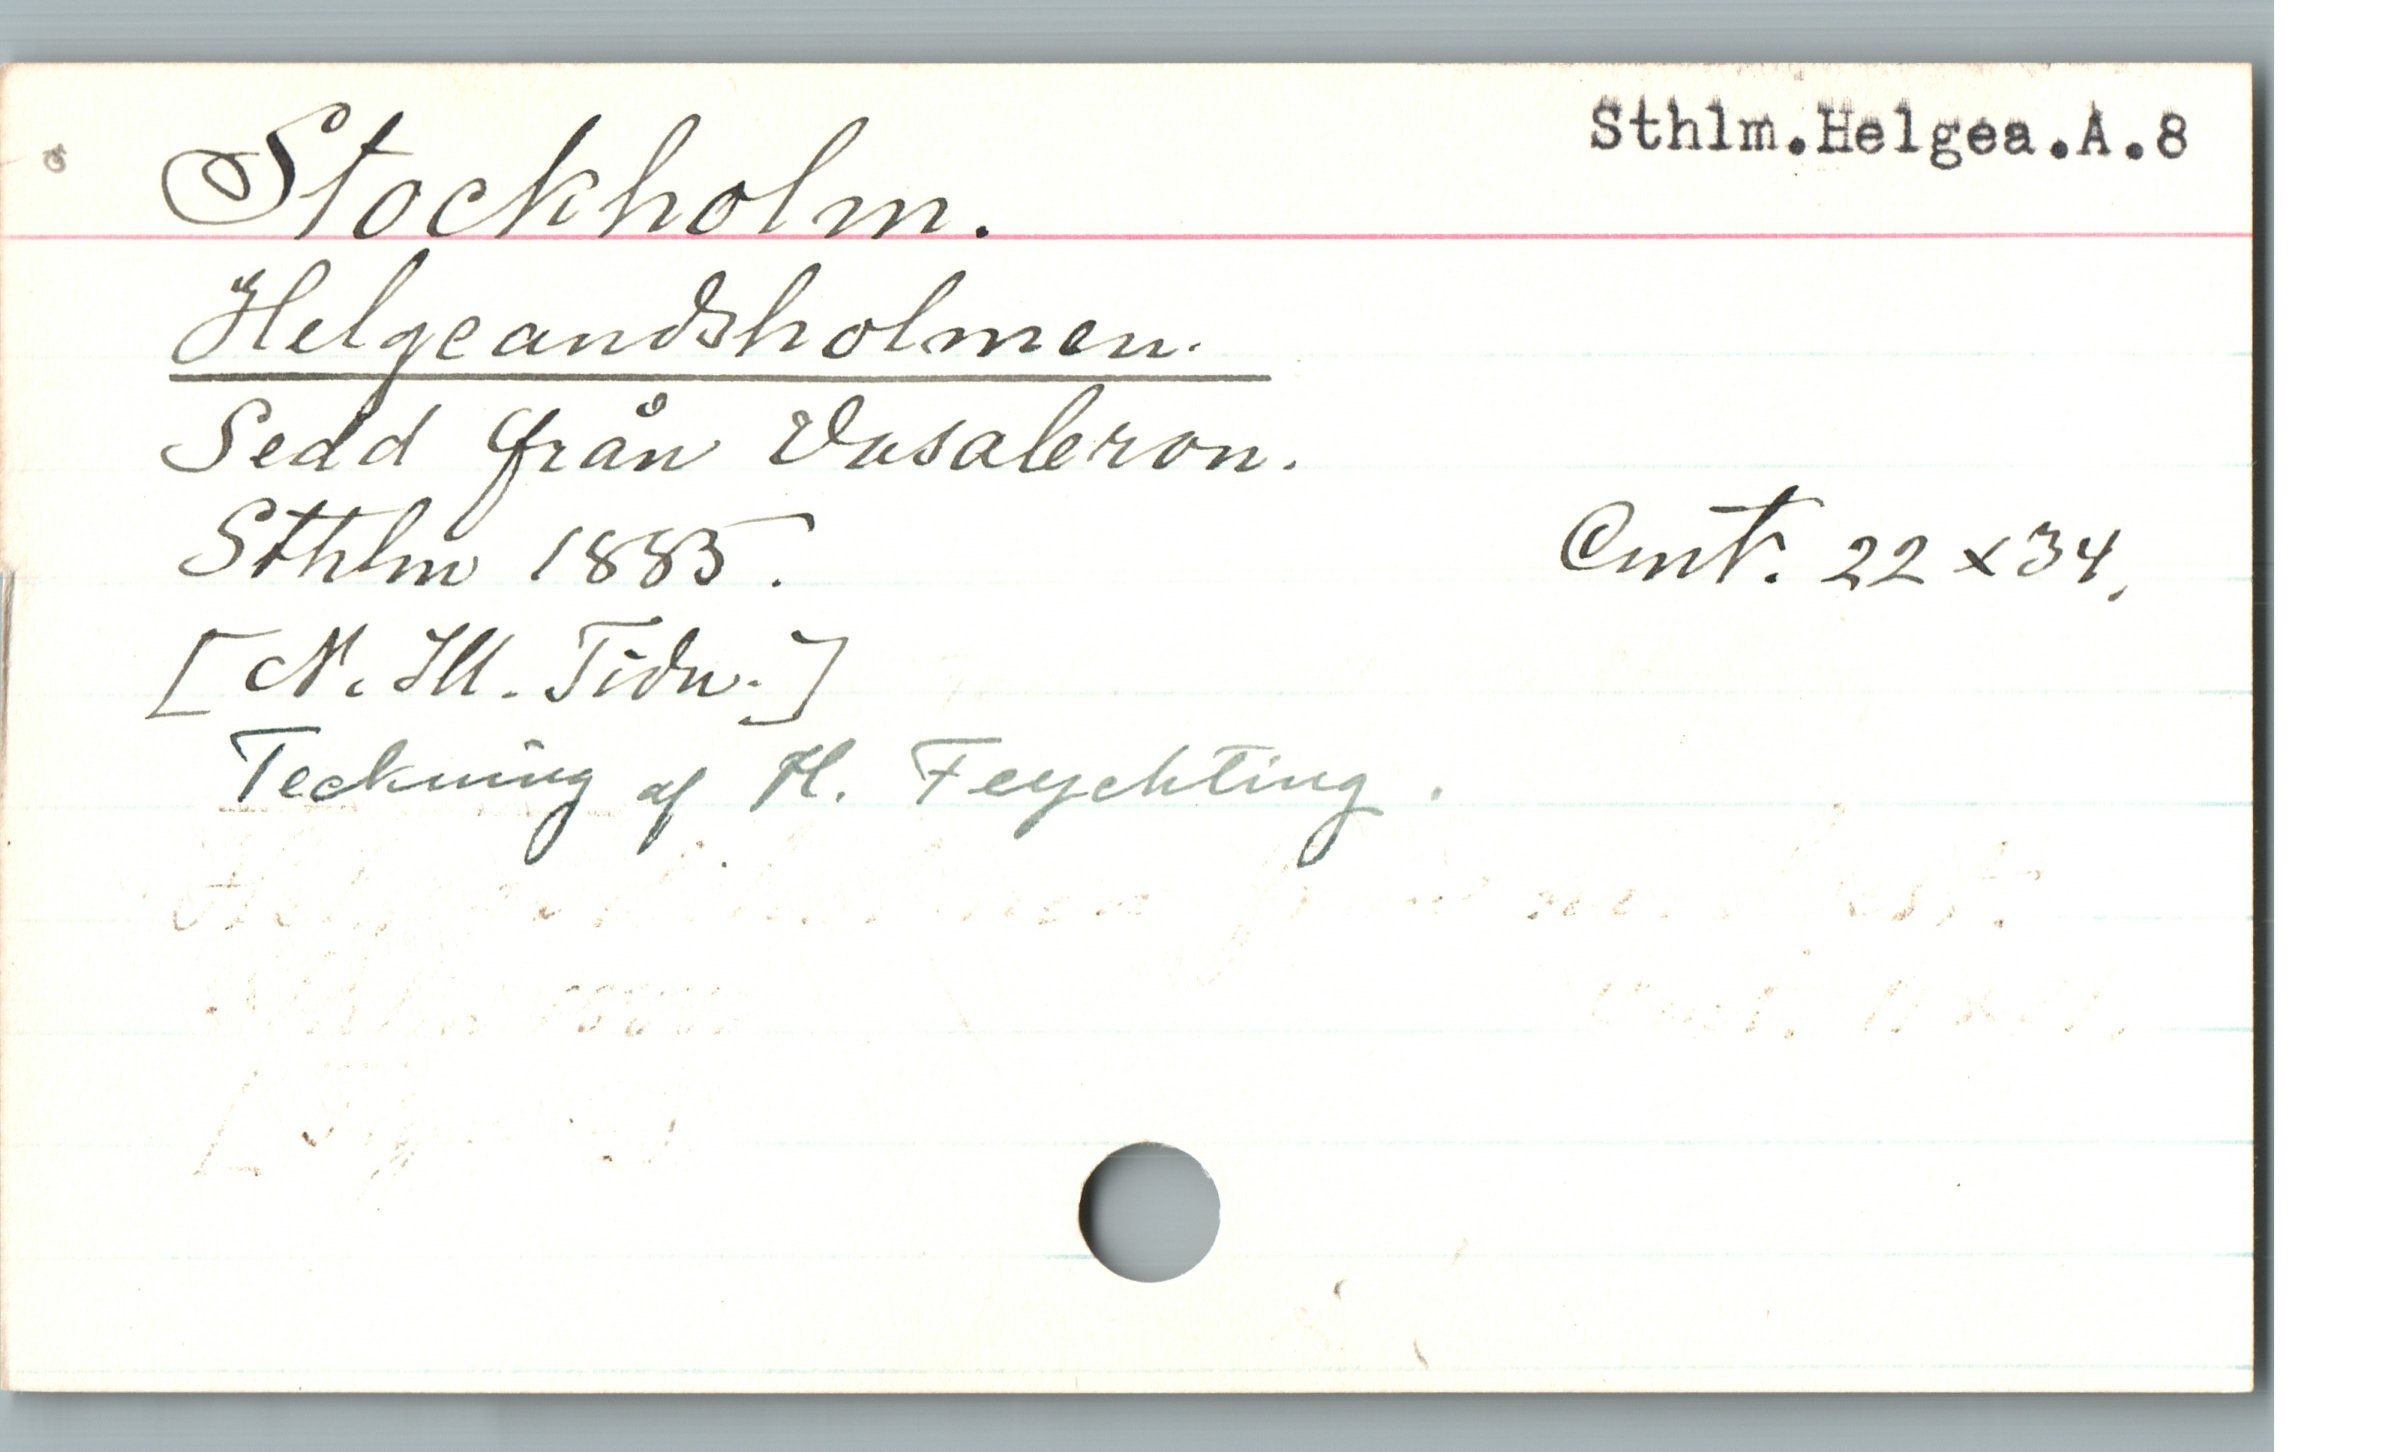 Sthlm.Helgea.A.8
Stockholm.
Helgeandsholmen.
Sedd från Vasabron.
Sthlm 1885.
Cmt. 22 x 34.
[N. Ill. Tidn.]
Teckning af H. Feychting.